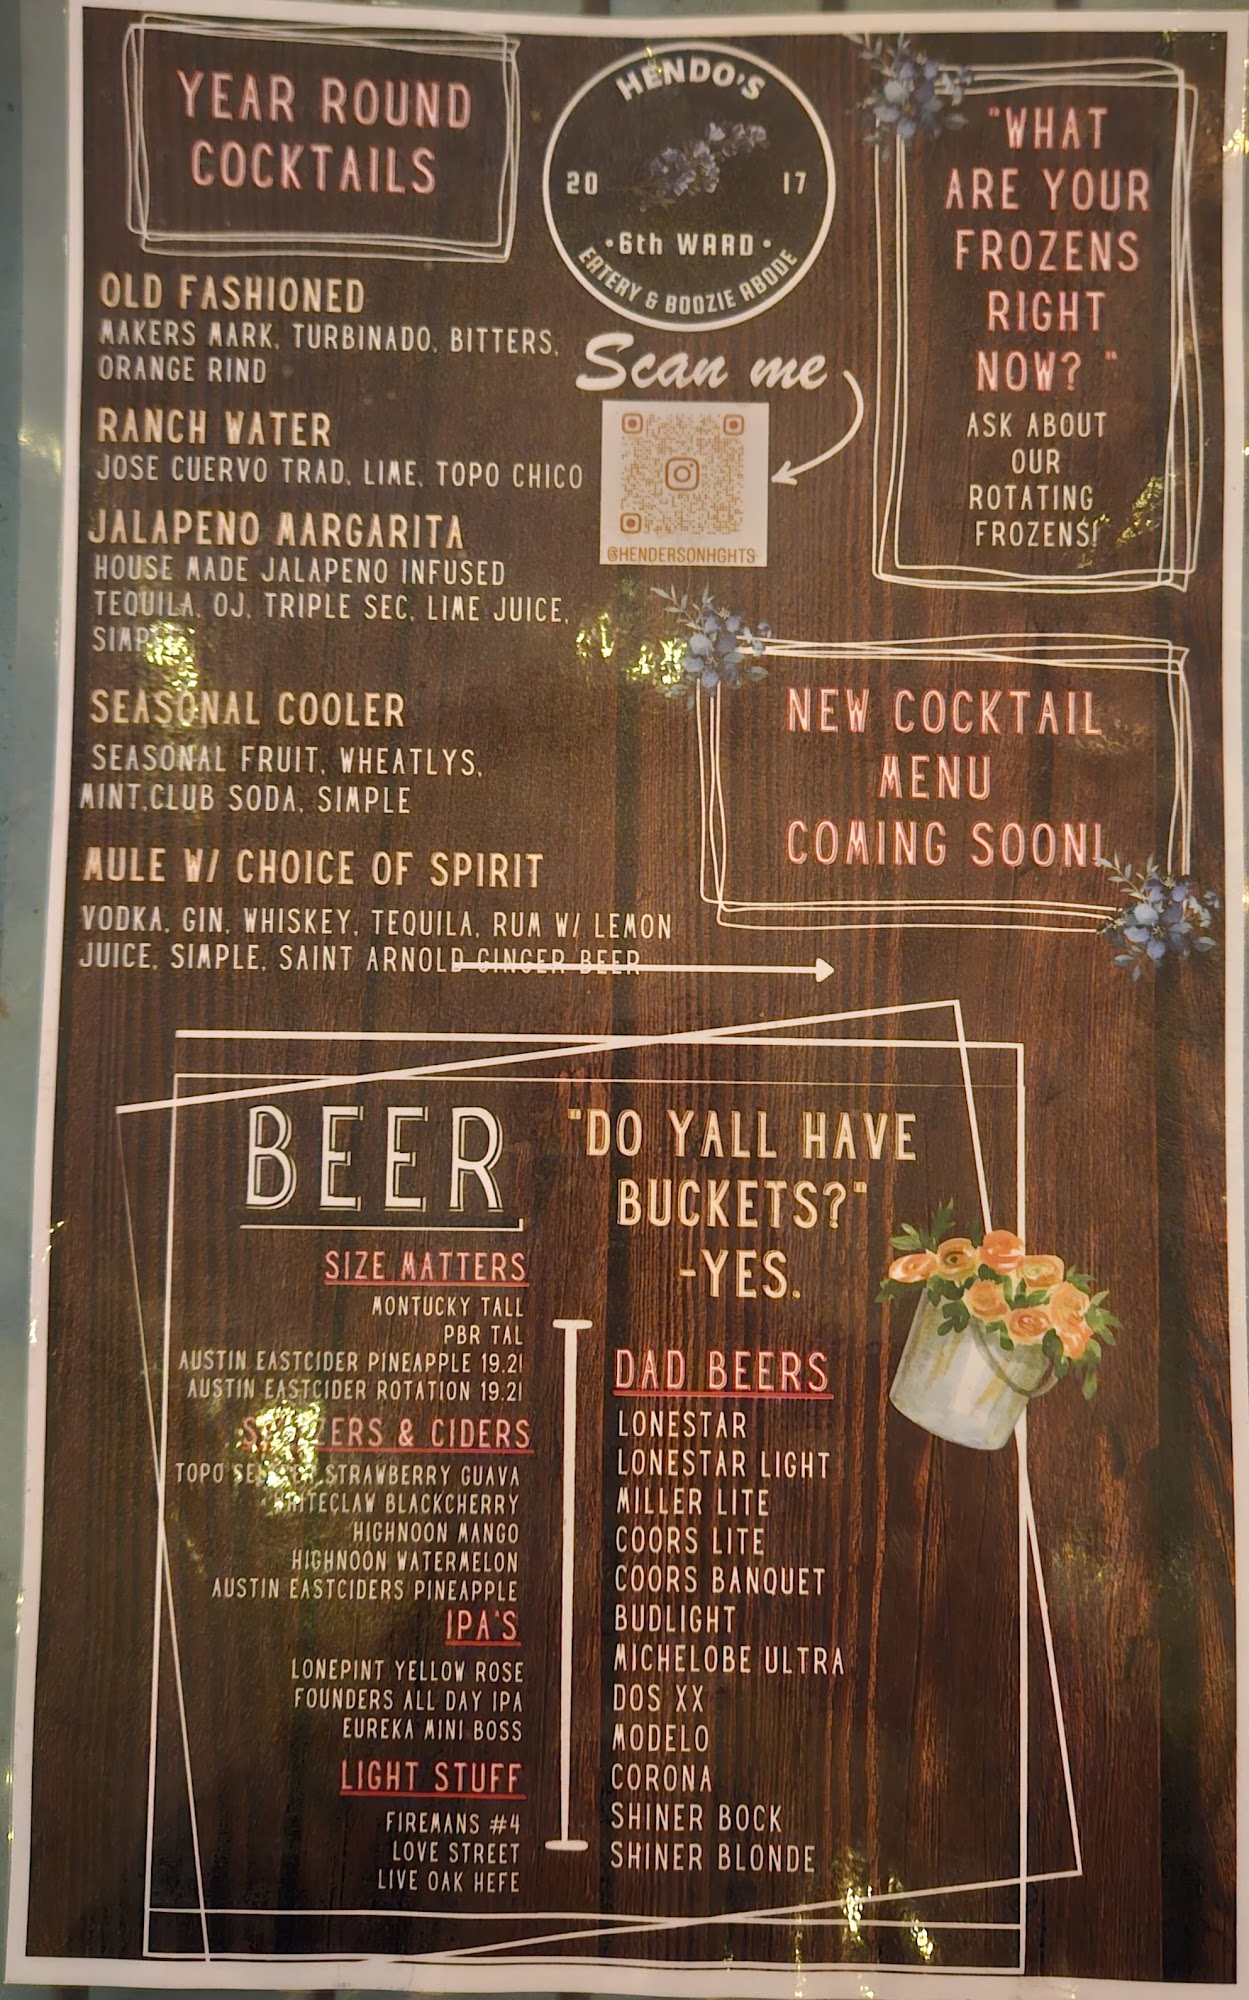 YEAR ROUND
COCKTAILS
OLD FASHIONED
MAKERS MARK, TURBINADO, BITTERS,
ORANGE RIND
RANCH WATER
JOSE CUERVO TRAD, LIME, TOPO CHICO
JALAPENO MARGARITA
HOUSE MADE JALAPENO INFUSED
TEQUILA, OJ, TRIPLE SEC, LIME JUICE,
SEASONAL COOLER
SEASONAL FRUIT, WHEATLYS,
MINT,CLUB SODA, SIMPLE
MULE W/ CHOICE OF SPIRIT
VODKA, GIN, WHISKEY, TEQUILA, RUM W/ LEMON
JUICE, SIMPLE, SAINT ARNOLD GINGER BEER
HENDO'S
20 17
•6th WARD•
EATERY & BOOZIE ABODE
Scan me
@HENDERSONHGHTS
"WHAT
ARE YOUR
FROZENS
RIGHT
NOW? "
ASK ABOUT
OUR
ROTATING
FROZENS!
NEW COCKTAIL
MENU
COMING SOON!
BEER
SIZE MATTERS
MONTUCKY TALL
PBR TAL
AUSTIN EASTCIDER PINEAPPLE 19.2!
AUSTIN EASTCIDER ROTATION 19.2!
& CIDERS
TOPO STRAWBERRY GUAVA
BLACKCHERRY
HIGHNOON MANGO
HIGHNOON WATERMELON
AUSTIN EASTCIDERS PINEAPPLE
IPA'S
LONEPINT YELLOW ROSE
FOUNDERS ALL DAY IPA
EUREKA MINI BOSS
LIGHT STUFF
FIREMANS #4
LOVE STREET
LIVE OAK HEFE
"DO YALL HAVE
BUCKETS?"
-YES.
DAD BEERS
LONESTAR
LONESTAR LIGHT
MILLER LITE
COORS LITE
COORS BANQUET
BUDLIGHT
MICHELOBE ULTRA
DOS XX
MODELO
CORONA
SHINER BOCK
SHINER BLONDE